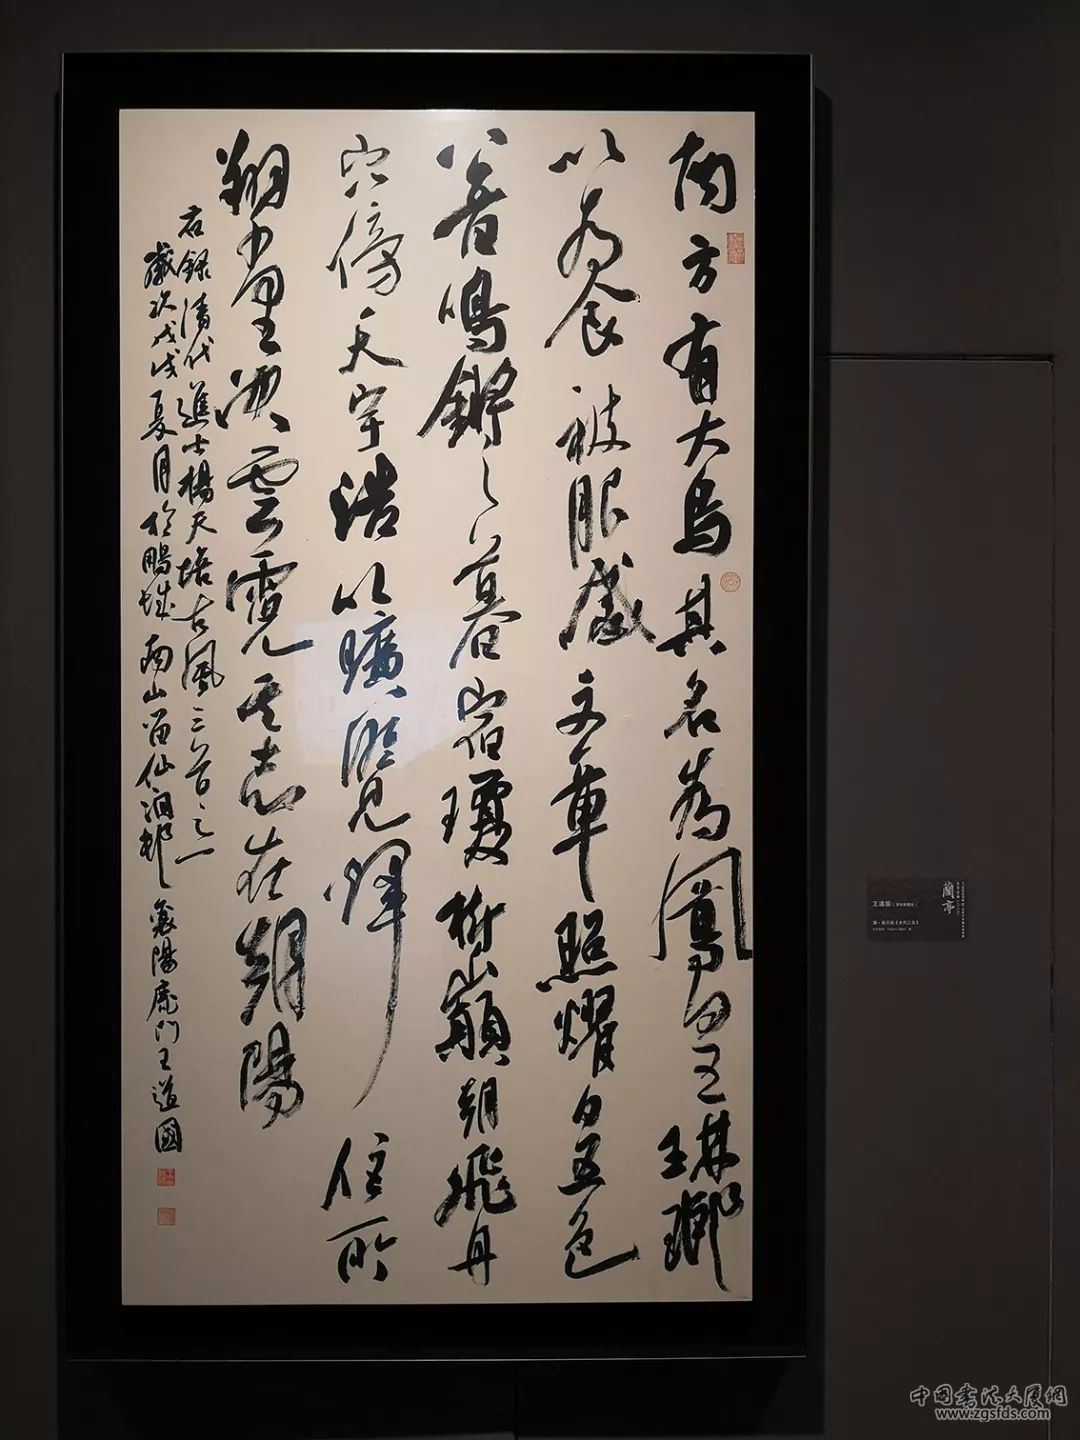 南方有大鳥其名為鳳皇琳瑯
以為食被服盛文章照耀五色
八音鳴鏘〻暮宿瓊樹巔朝飛丹
穴傍天宇浩以曠覽輝任所
翔里決雲霓其志在朝陽
右錄清代進士楊天培古風三首之一
歲次戊戌夏月於鵬城南山留仙洞邨襄陽鹿門王道國
蘭亭
王道国
中国书法大厦網
www.zgsfds.com